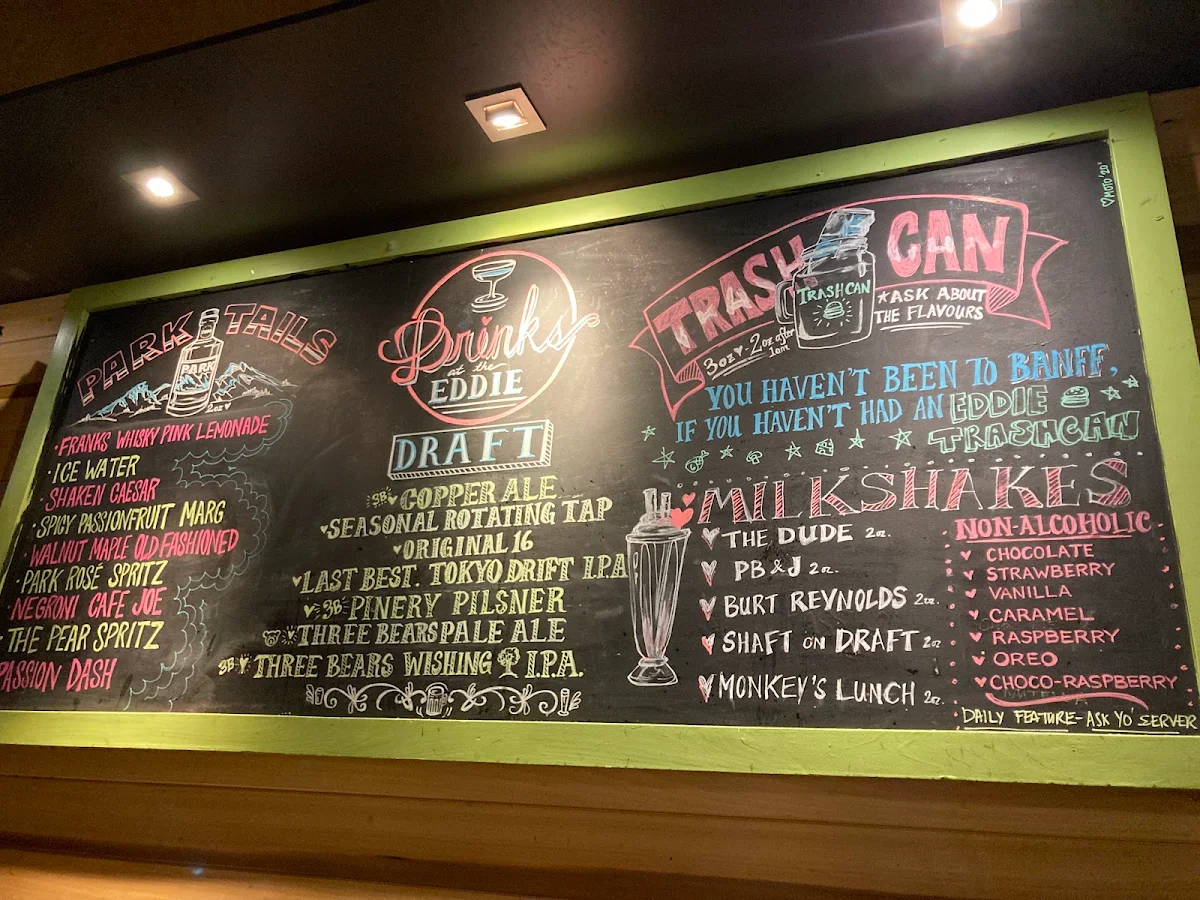 PARK TAILS
PARK
2oz
FRANKS WHISKY PINK LEMONADE
ICE WATER
SHAKEN CAESAR
SPICY PASSIONFRUIT MARG
WALNUT MAPLE OLD FASHIONED
PARK ROSÉ SPRITZ
NEGRONI CAFE JOE
THE PEAR SPRITZ
PASSION DASH
Drinks
at the
EDDIE
DRAFT
3B COPPER ALE
SEASONAL ROTATING TAP
ORIGINAL 16
LAST BEST. TOKYO DRIFT I.P.A
3B PINERY PILSNER
THREE BEARS PALE ALE
3B THREE BEARS WISHING I.P.A.
TRASH CAN
TRASHCAN
3oz - 2oz after 1am
*ASK ABOUT
THE FLAVOURS
YOU HAVEN'T BEEN TO BANFF,
IF YOU HAVEN'T HAD AN EDDIE
TRASHCAN
MILKSHAKES
THE DUDE 2oz.
PB & J 2oz.
BURT REYNOLDS 2oz.
SHAFT ON DRAFT 2oz
MONKEY'S LUNCH 2oz.
NON-ALCOHOLIC
CHOCOLATE
STRAWBERRY
VANILLA
CARAMEL
RASPBERRY
OREO
CHOCO-RASPBERRY
DAILY FEATURE - ASK YO' SERVER
MOTO '20